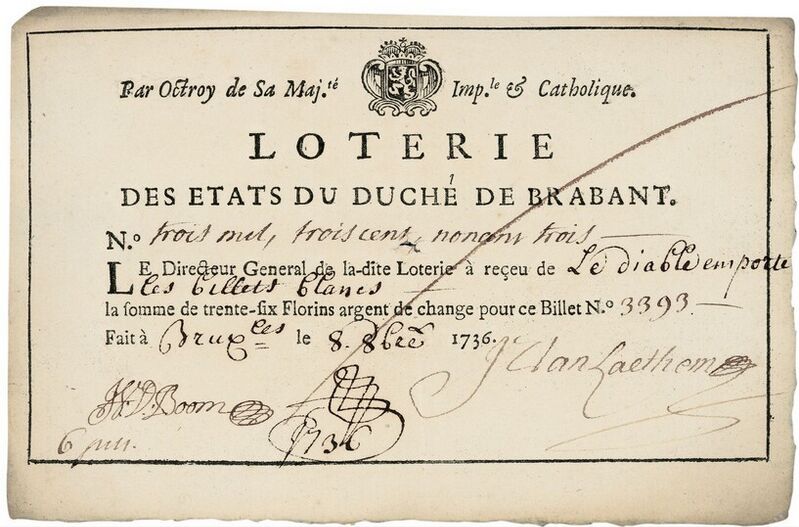 Par Octroy de Sa Maj.té Imp.le & Catholique.
LOTERIE
DES ETATS DU DUCHÉ DE BRABANT.
N.o trois mil, trois cent, nonant trois
LE Directeur General de la-dîte Loterie à reçeu de Le diable emporte
les billets blancs
la somme de trente-six Florins argent de change pour ce Billet N.o 3393
Fait à Bruxlles le 8. 8bre 1736.
J. Van Laethem
J.V.D. Boom
1736